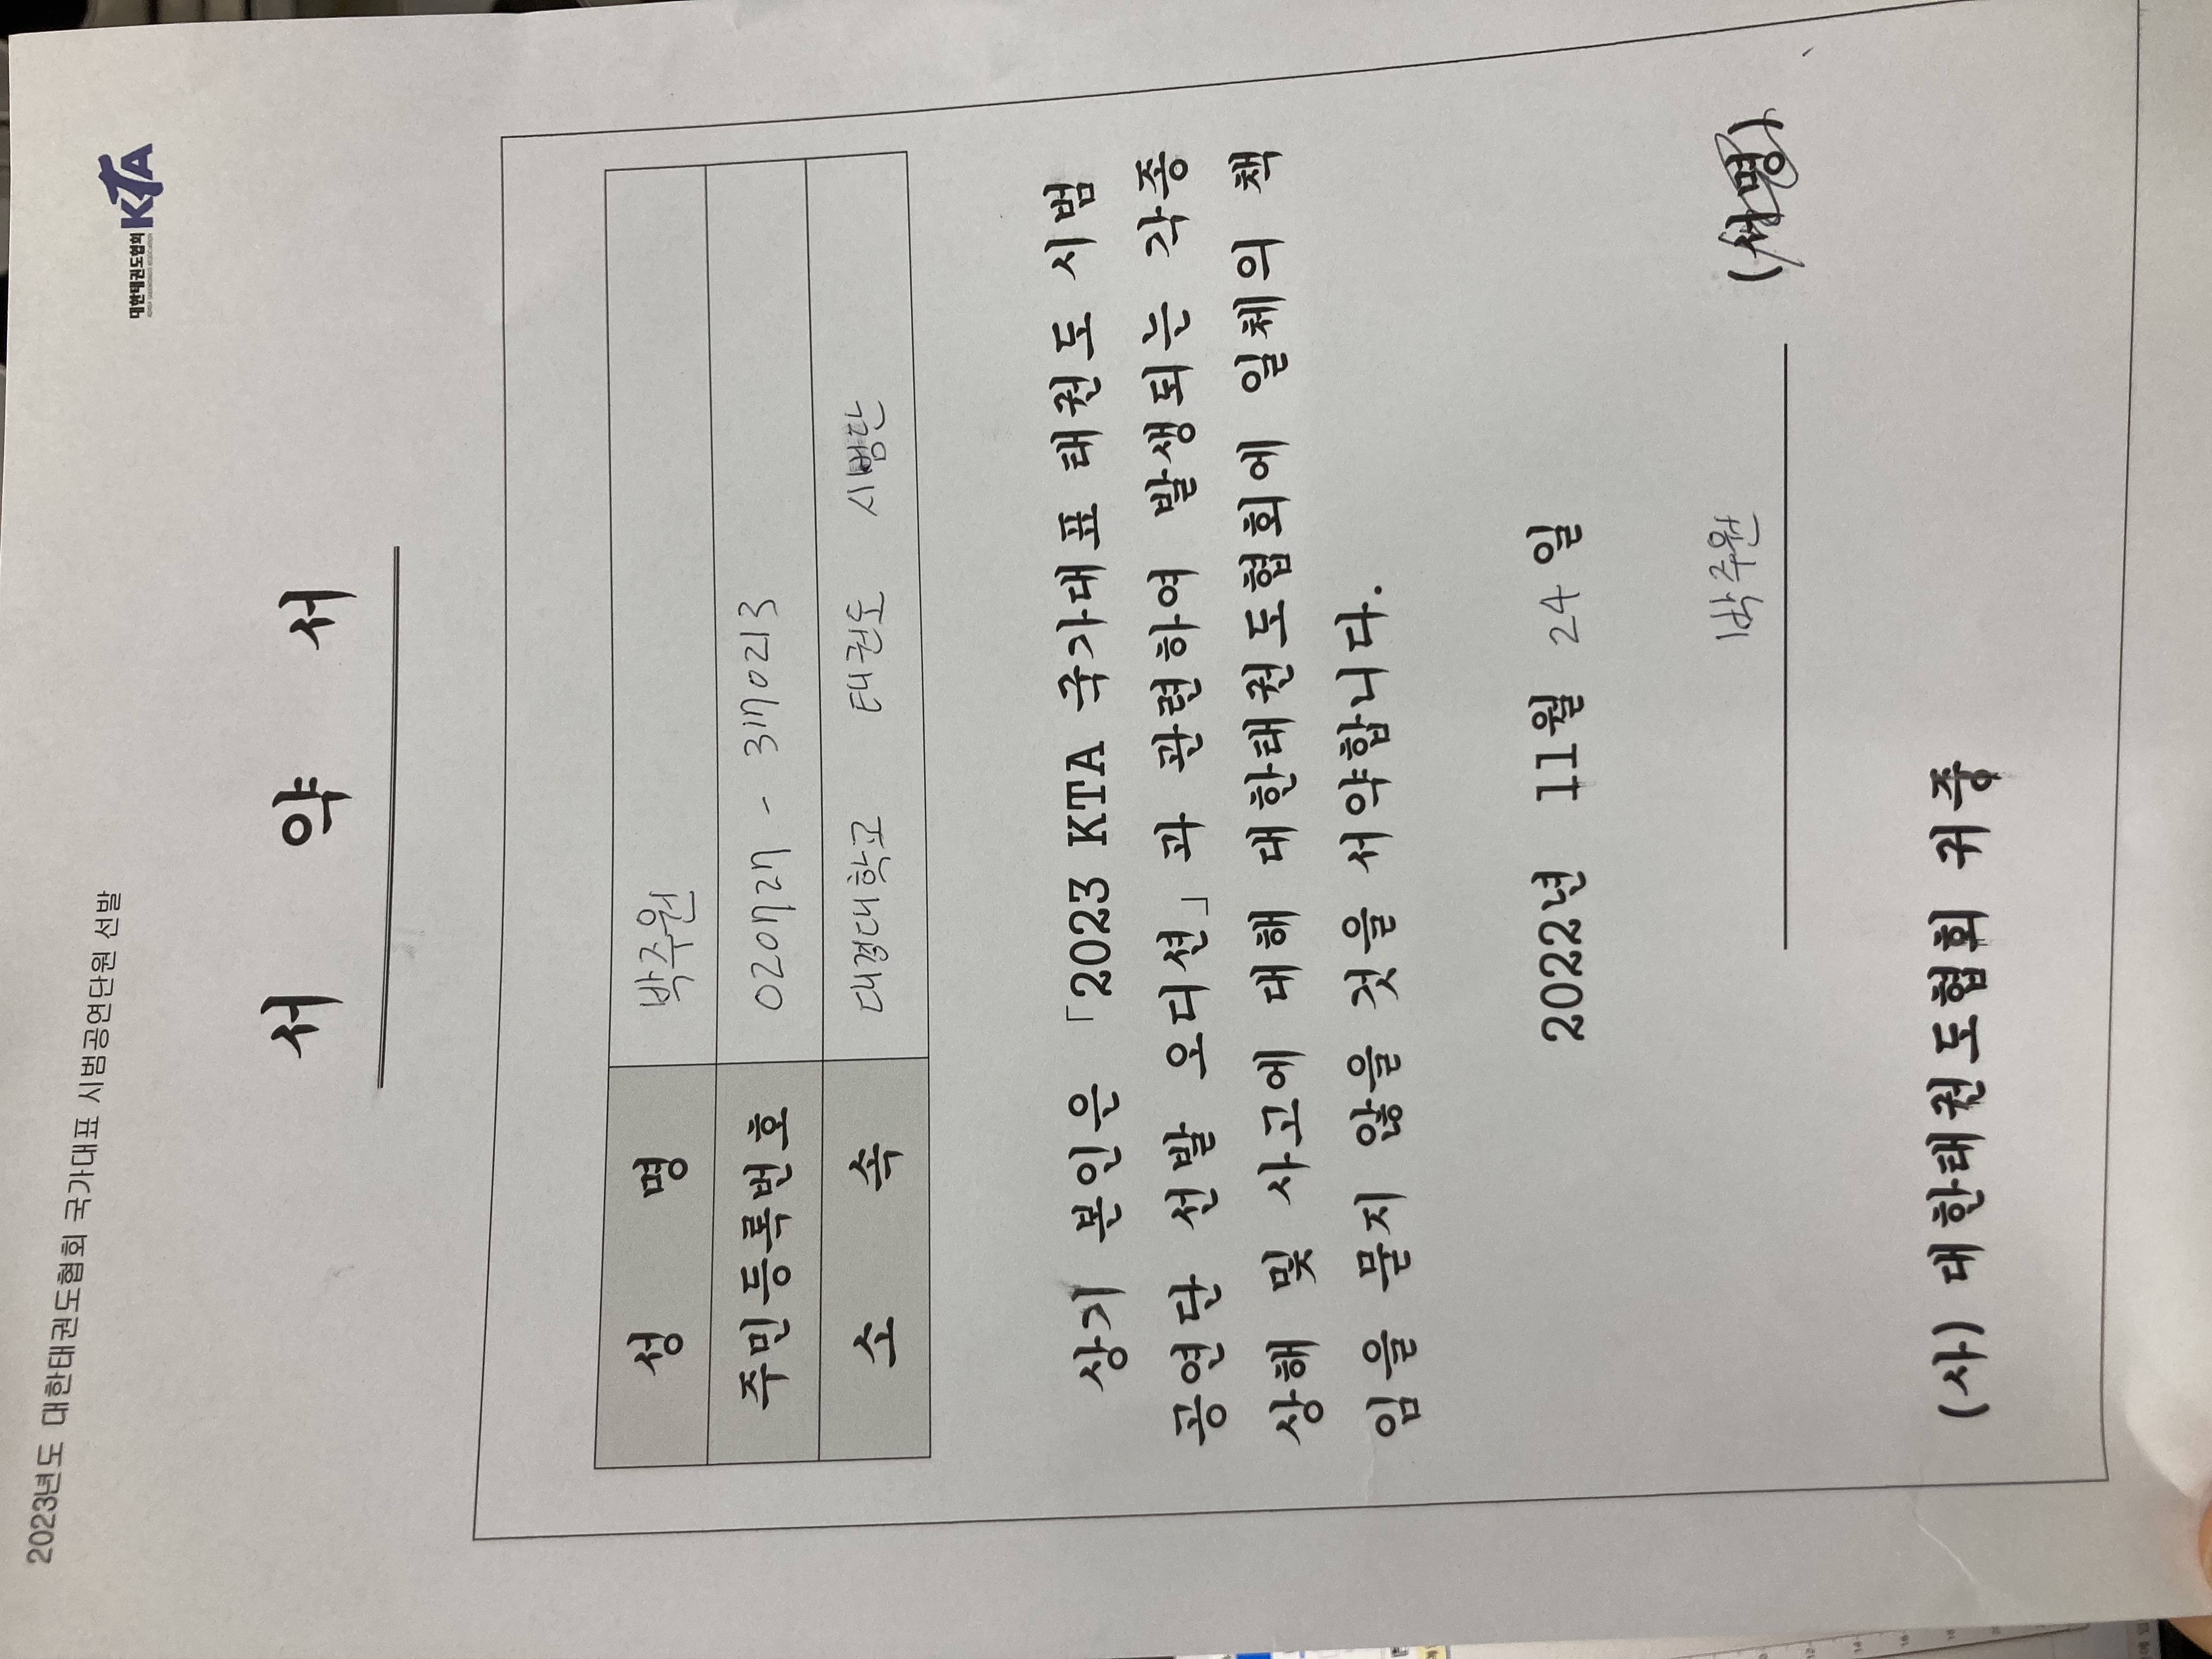 2023년도 대한태권도협회 국가대표 시범공연단원 선발
대한태권도협회 KTA
서 약 서
성 명 박주원
주민등록번호 020727 - 3170213
소 속 대경대학교 태권도 시범단
상기 본인은 「2023 KTA 국가대표 태권도 시범
공연단 선발 오디션」과 관련하여 발생되는 각종
상해 및 사고에 대해 대한태권도협회에 일체의 책
임을 묻지 않을 것을 서약합니다.
2022년 11월 24일
박주원 (서명)
(사) 대한태권도협회 귀중